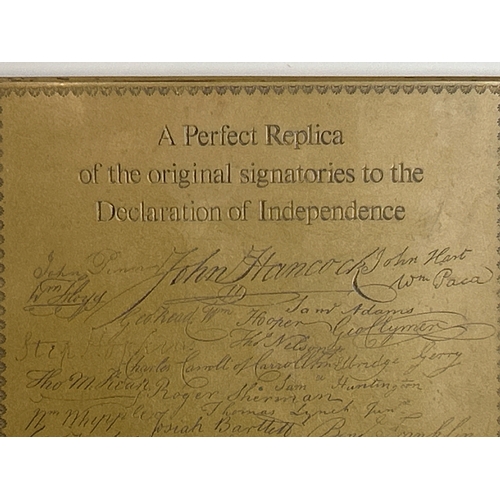 A Perfect Replica
of the original signatories to the
Declaration of Independence
John Hancock John Hart
Wm Floyd Wm Paca
Geo Read Wm Hooper Sam Adams
Geo Clymer
Step
Charles Carroll of Carrollton Elbridge Gerry
Tho M Kean Roger Sherman Sam Huntington
Wm Whipple Thomas Lynch Junr
Josiah Bartlett Benj Franklin